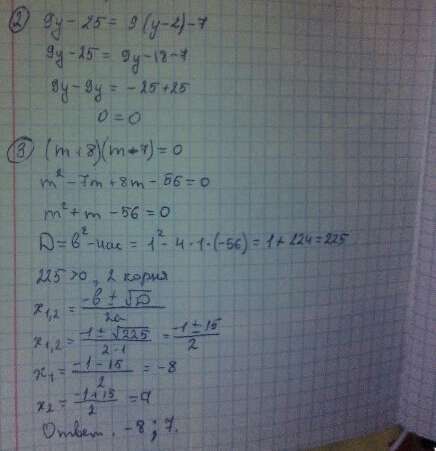 2) 9y - 25 = 9(y-2)-7
9y-25 = 9y-18-7
9y-9y = -25+25
0 = 0
3) (m+8)(m-7)=0
m² - 7m + 8m - 56 = 0
m² + m - 56 = 0
D = b² - 4ac = 1² - 4·1·(-56) = 1 + 224 = 225
225 > 0, 2 корня
x₁,₂ = (-b ± √D)/2a
x₁,₂ = (-1 ± √225)/(2·1) = (-1 ± 15)/2
x₁ = (-1-15)/2 = -8
x₂ = (-1+15)/2 = 7
Ответ: -8; 7.